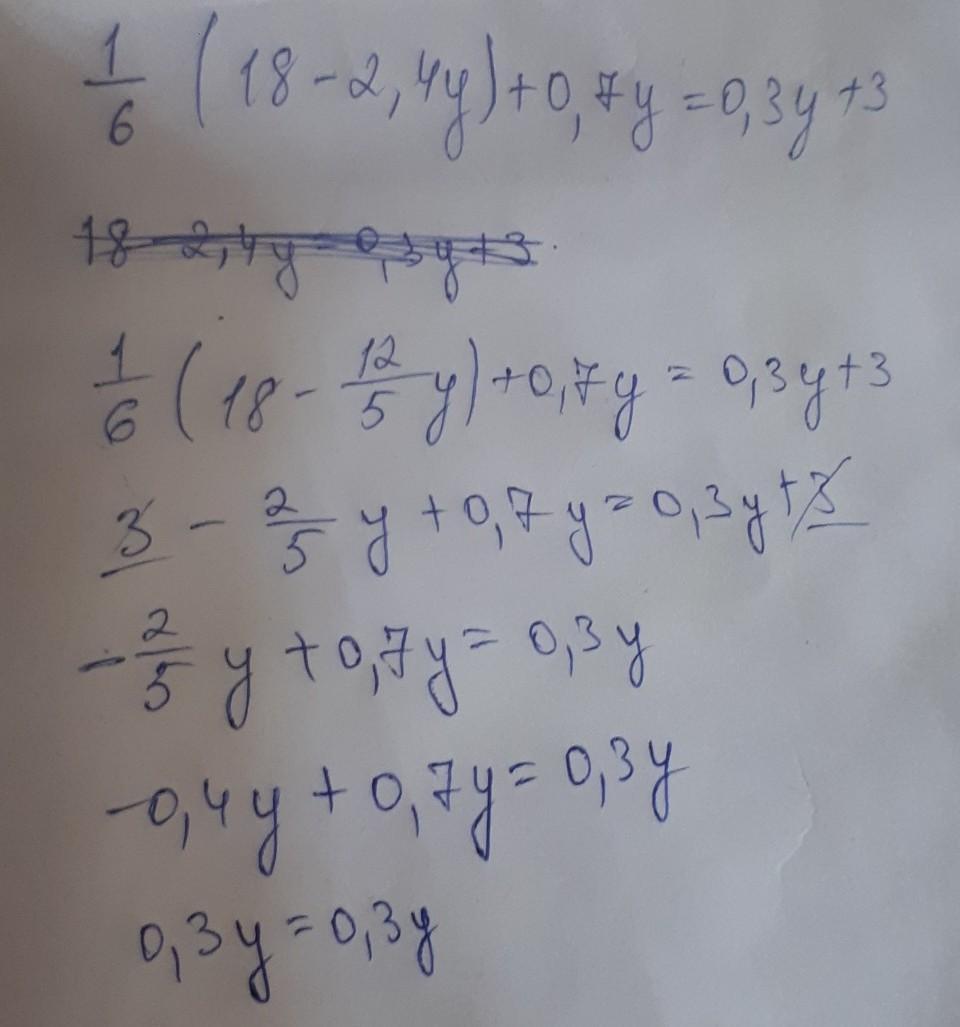 1/6 (18-2,4y)+0,7y=0,3y+3
18-2,4y=0,3y+3
1/6 (18-12/5y)+0,7y=0,3y+3
3-2/5y+0,7y=0,3y+3
-2/5y+0,7y=0,3y
-0,4y+0,7y=0,3y
0,3y=0,3y